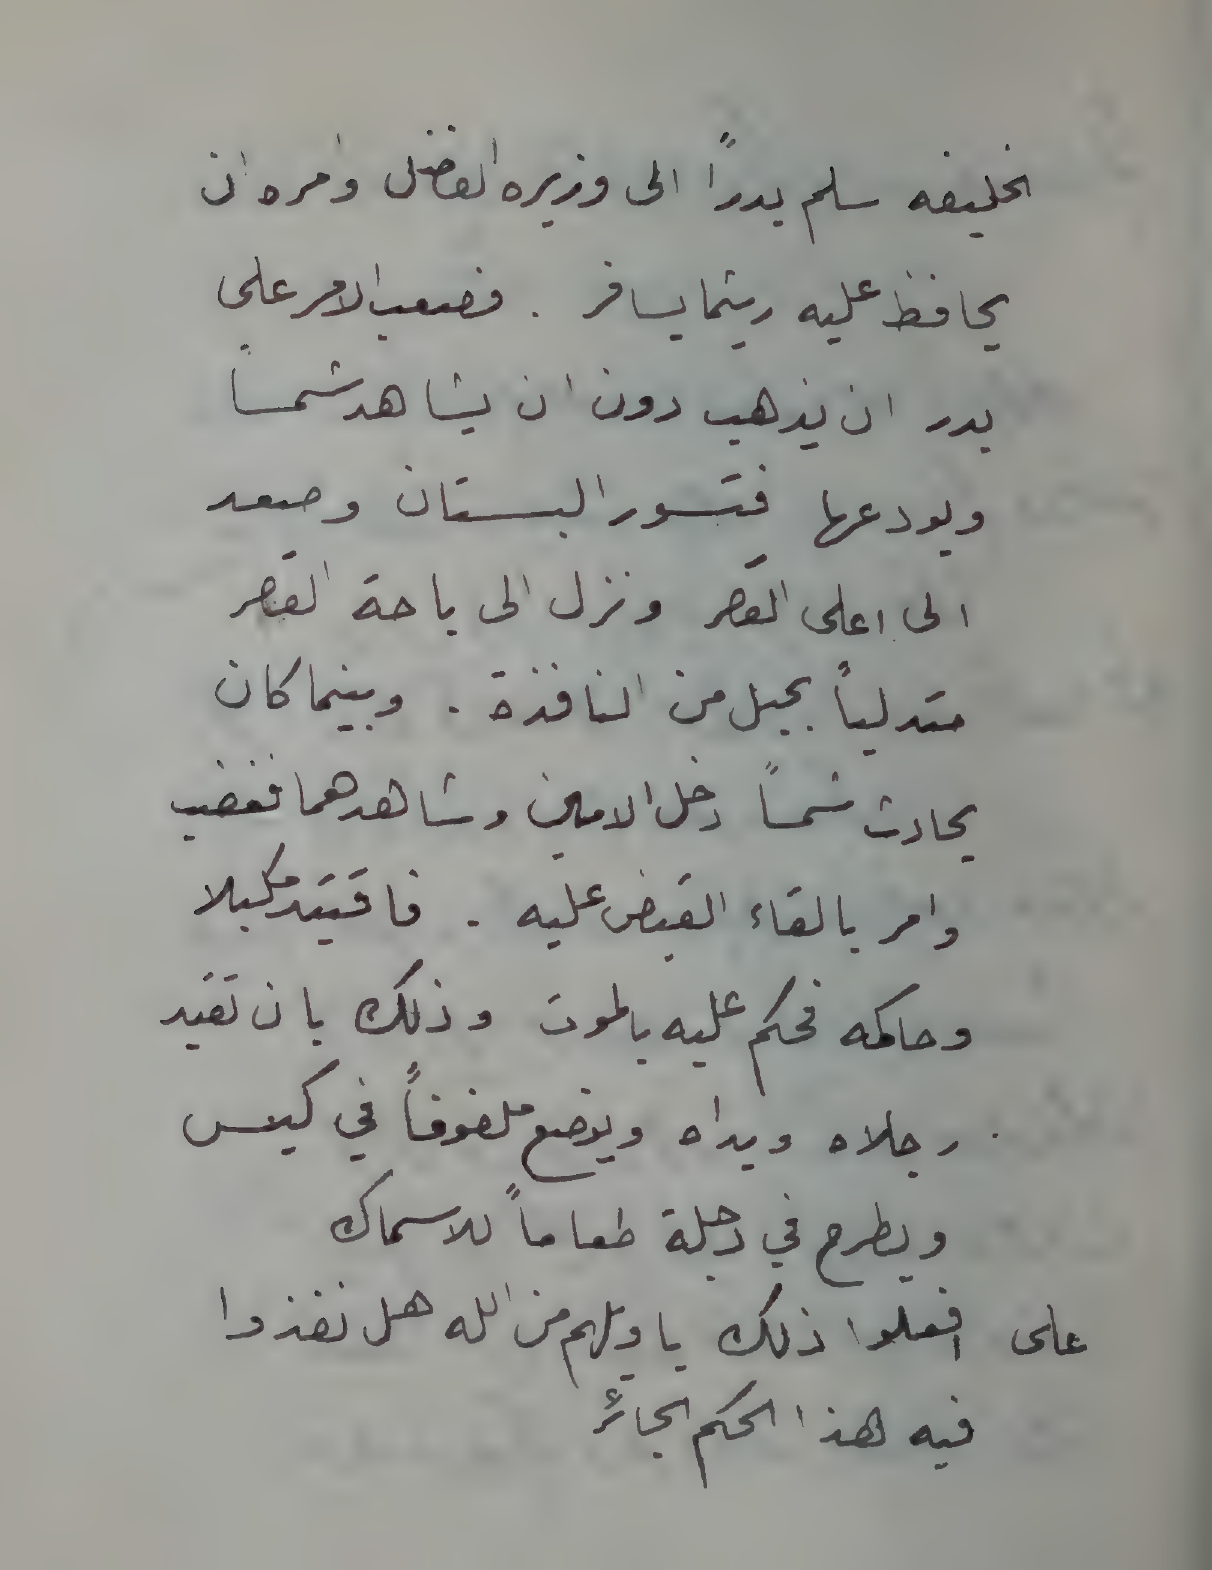 الخليفه سلم بدراً الى وزيره الفضل وامره ان
يحافظ عليه ريثما يسافر . فصعب الامر على
بدر ان يذهب دون ان يشاهد شمساً
ويودعها فتسور البستان وصعد
الى اعلى القصر ونزل الى باحة القصر
متدلياً بحبل من النافذة . وبينما كان
يحادث شمساً دخل الامين وشاهدهما فغضب
وامر بالقاء القبض عليه . فاقتيد مكبلا
وحاكمه فحكم عليه بالموت وذلك بان تقيد
رجلاه ويداه ويوضع ملفوفاً في كيس
ويطرح في دجلة طعاماً للاسماك
على افعلوا ذلك يا ويلهم من الله هل نفذوا
فيه هذا الحكم الجائر